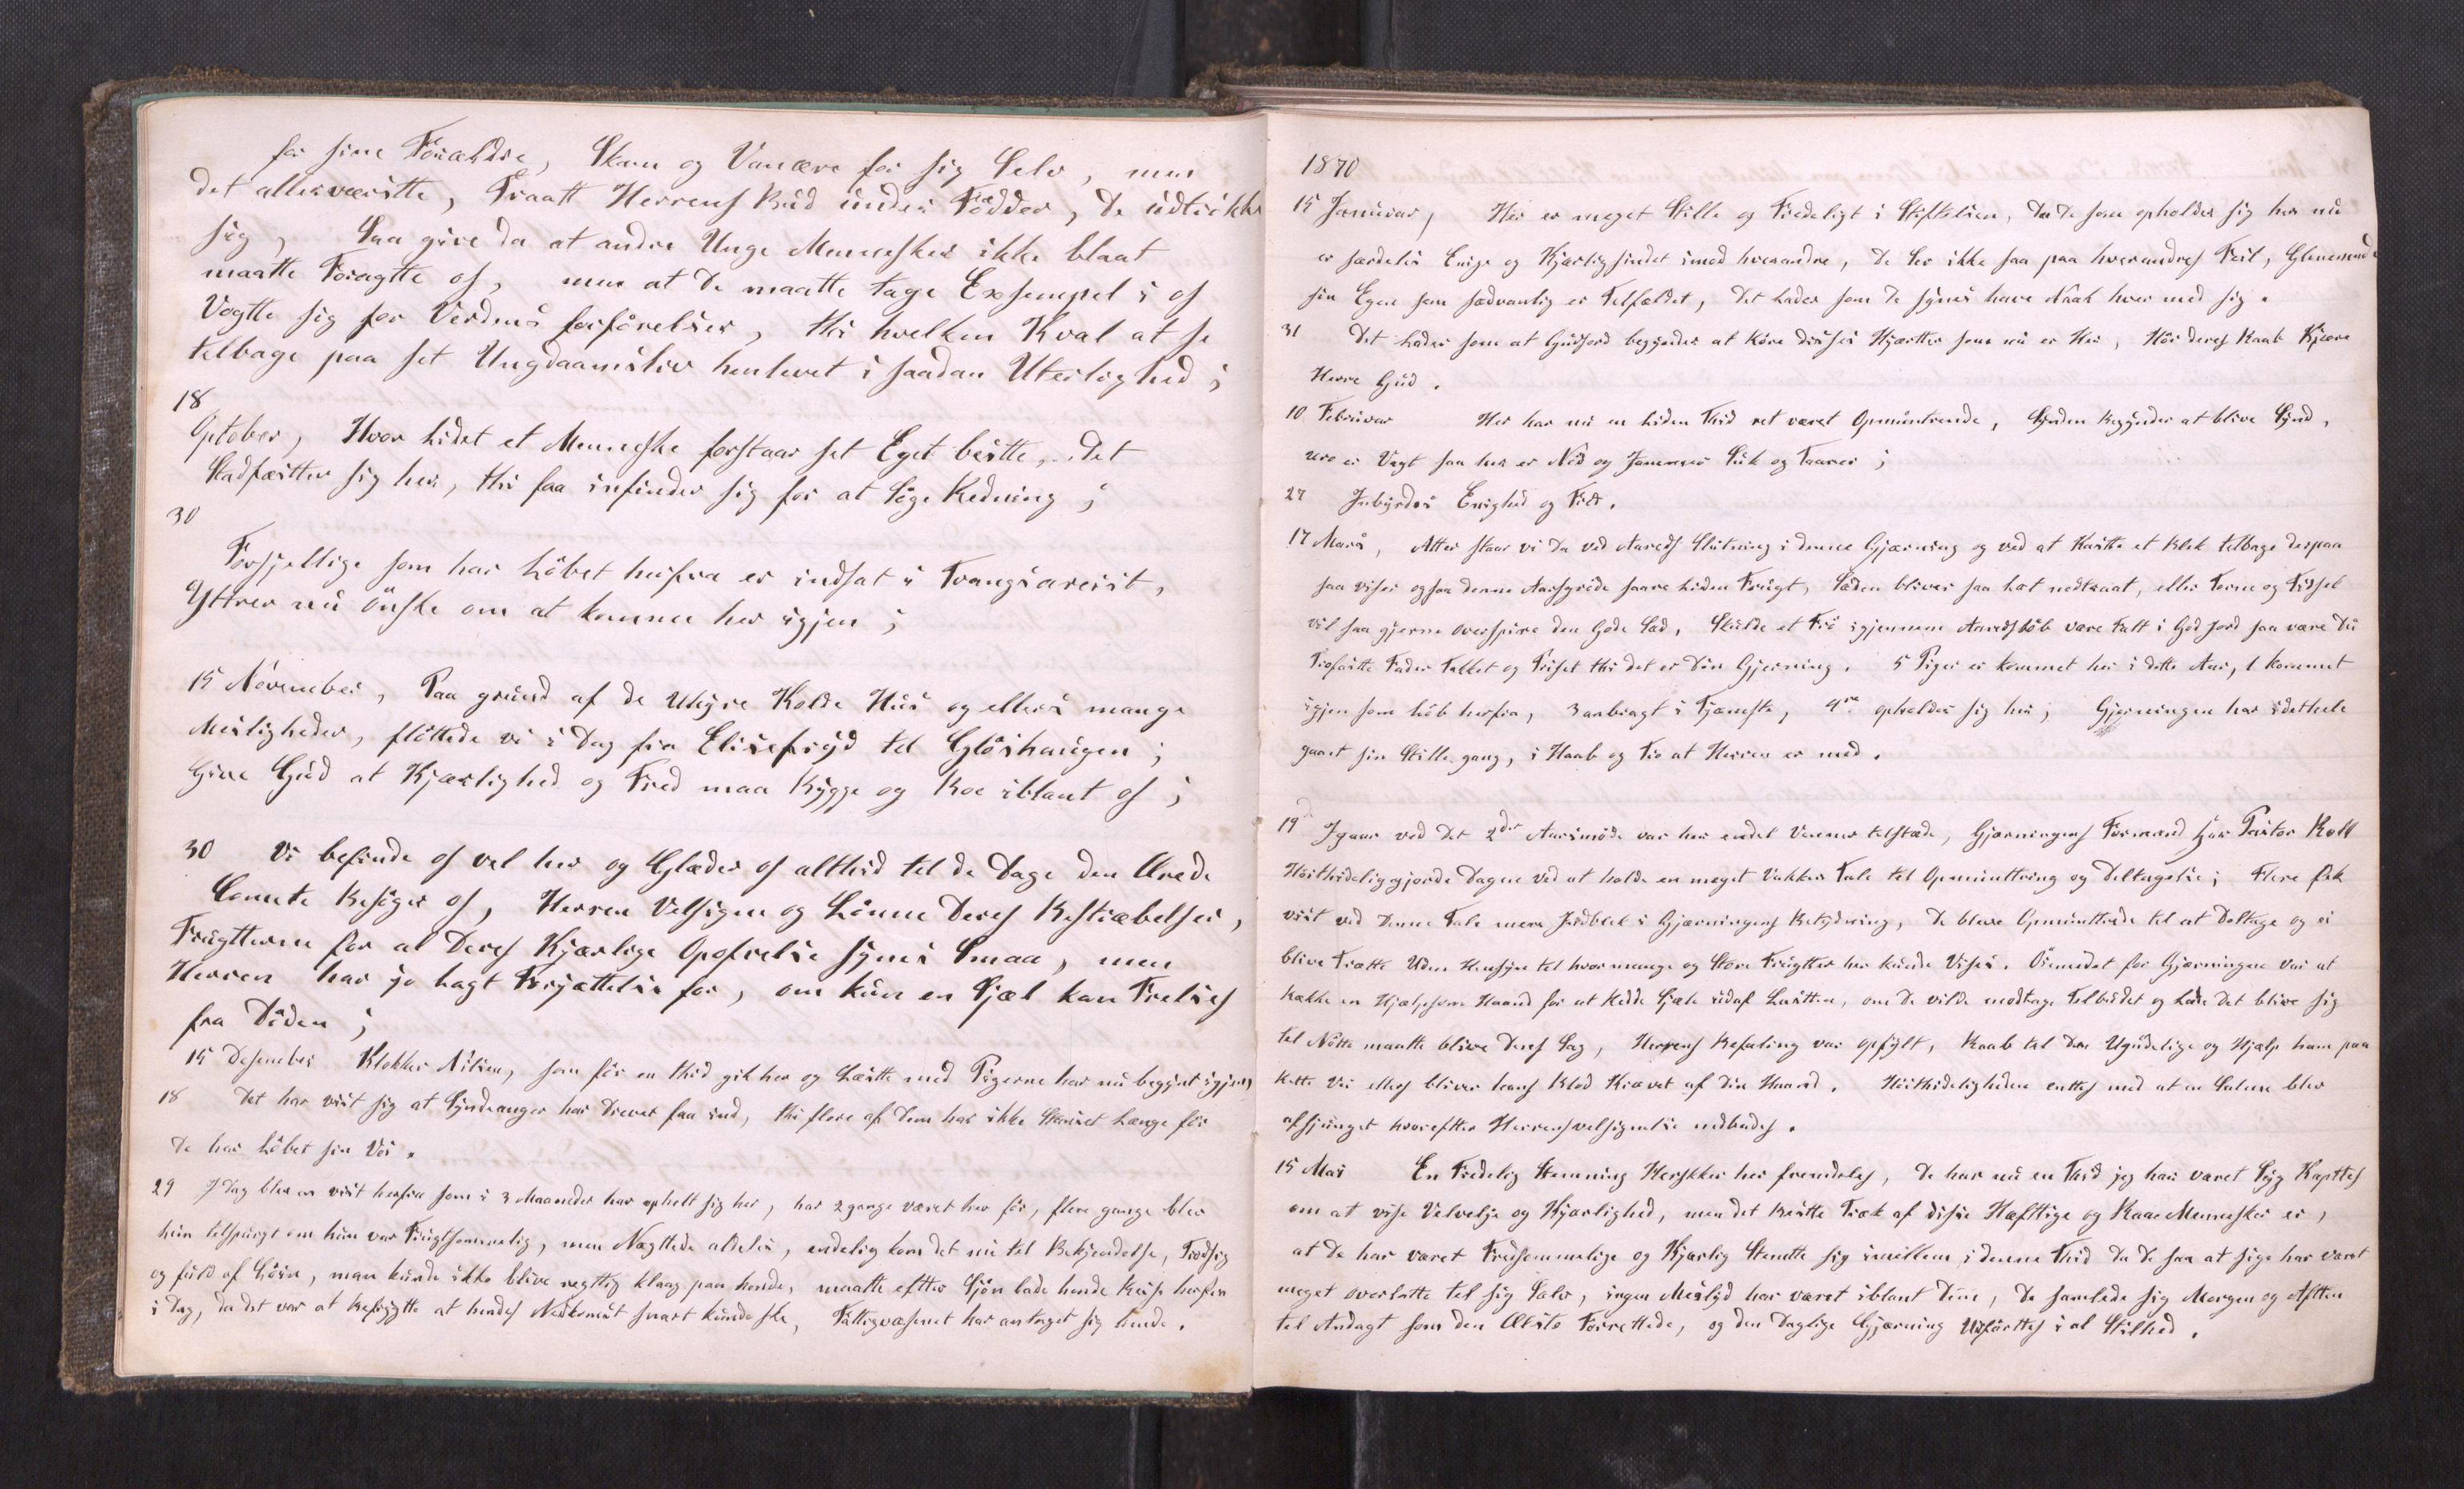 for sine Forældre, Skam og Vanære for sig Selv, men
det allerværstte, Traatt Herrens Bud under Födder, de udtrikker
sig, Saa give da at andre Unge Mennesker ikke blaat
maatte Foragtte os, men at de maatte tage Exsempel i os
Vogtte sig for Verdens forförelser, thi hvelken Kval at se
telbage paa set Ungdaamsliv henlevet i saadan Uterlighed ;
18
Optober, Hvor Lidet et Menneske forstaar set Eget bestte, det
Stadfæstter sig her, thi faa infinder sig for at Söge Redning ;
30
Forsjellige som har Löbet herfra er indsat i Tvangsarrest,
Yttrer nu önske om at komme her igjen ;
15 November, Paa grund af de Uhyre Kolde Hus og ellers mange
Meiligheder, flöttede vi i Dag fra Elisefryd tel Glöshaugen ;
Give Gud at Kjærlighed og Fred maa Bygge og Boe iblant os ;
30 Vi befinde os vel her og Glæder os alttid tel de Dage den Ærede
Comete Besöger os, Herren Velsigne og Lönne Deres Bestræbelser,
Frugtterne for al Deres Kjærlige Opofrelse synes Smaa, men
Herren har jo hagt Forjættelse for, om kun en Sjæl kan Frelses
fra Döden ;
15 Desember Klokker Nilsen, som för en thid gik her og Læstte med Pigerne har nu begynt igjen,
18 Det har vist sig at Syndeanger har Drevet faa ind, thi flere af Dem har ikke Stanset Længe för
de har Löbet sin Vei.
29 I Dag blev en vist herfra som i 3 Maaneder har opholt sig her, har 2 gange været her för, flere gange blev
hun telspurgt om hun var Frugtsommelig, men Nægttede aldeles, endelig kom det nu tel Bekjendelse, Trodsig
og fuld af Lögn, man kunde ikke blive regttig klaag paa hende, maatte eftter Sjön lade hende Reise herfra
i Dag, da det var at befrygtte at hendes Nedkomst snart kunde ske, Fattigvæsenet har antaget sig hende.
1870
15 Januar, Her er meget Stille og Fredeligt i Stiftelsen, Da De som opholder sig her nu
er særdeles Enige og Kjærligsindet imod hverandre, De Ser ikke saa paa hverandres Feil, Glemmende
sin Egen som sædvanlig er Telfældet, Det Lader som De synes have Naak hver med sig.
31 Det Lader som at Gudsord begynder at Röre disse Hjærtter som nu er Her, Hör deres Raab Kjære
Herre Gud.
10 Februar Her har nu en Liden Thid ret været Opmuntrende, Synden Begynder at blive Synd,
uro er Vagt saa her er Nöd og Jammer Suk og Taarer ;
27 Inbyrdes Enighed og Fred.
17 Mars, Atter staar vi da ved Aarets Slutning i denne Gjærning og ved at Kastte et Blek telbage derpaa
saa viser ogsaa denne Aarsgröde saare Liden Frugt, Sæden bliver saa Let nedtraat, eller Torne og Tidsel
vil saa gjerne overspire den Gode Sæd, Skulde et Frö igjennem Aaredslöb være Falt i God Jord saa være Du
Trofastte Fader Takket og Priset thi det er Din Gjerning. 5 Piger er kommet her i dette Aar, 1 kommet
igjen som löb herfra, 3 anbragt i Tjæneste, 4re opholder sig her, Gjerningen har idethele
gaaet sin Stille gang, i Haab og Tro at Herren er med.
19de Igaar ved Det 2det Aarsmöde var her endel Venner telstæde, Gjærningens Formand Herr Pastor Koll
Höitideliggjorde Dagen ved at holde en meget Vakker Tale tel Opmunttring og Deltagelse ; Flere fik
vist ved Denne Tale mere Indblek i Gjærningens Betydning, De bleve Opmunttrede tel at Deltage og ei
blive Trætte Uden Hensyn tel hvor mange og Store Frugtter her kunde Vises. Öiemedet for Gjærningen var at
Række en Hjælpsom Haand for at Redde Sjæle udaf Lastten, om De vilde modtage Telbudet og Lade Det blive sig
tel Nötte maatte blive Deres Sag, Herrens Befaling var opfylt, Raab tel Den Ugudelige og Hjælp ham paa
Rette Vei ellers bliver hans Blod Krævet af Din Haand. Höitideligheden enttes med at en Salme blev
afsjunget hvoreftter Herrensvelsignelse nedbades.
15 Mai En Fredelig Stemning Herskker her fremdeles, De har nu en Thid jeg har været Syg Kapttes
om at vise Velvelje og Kjærlighed, men det Bestte Træk af disse Hæfttige og Raae Mennesker er,
at De har været Fredsommelige og Kjærlig Stemtte sig imellem, i denne Thid da De saa at sige har været
meget overlatte tel sig Selv, ingen Meislyd har været iblant Dem, De samlede sig Morgen og Aftten
tel Andagt som den Ælste Forrettede, og den Daglige Gjærning Udförttes i al Stilhed.